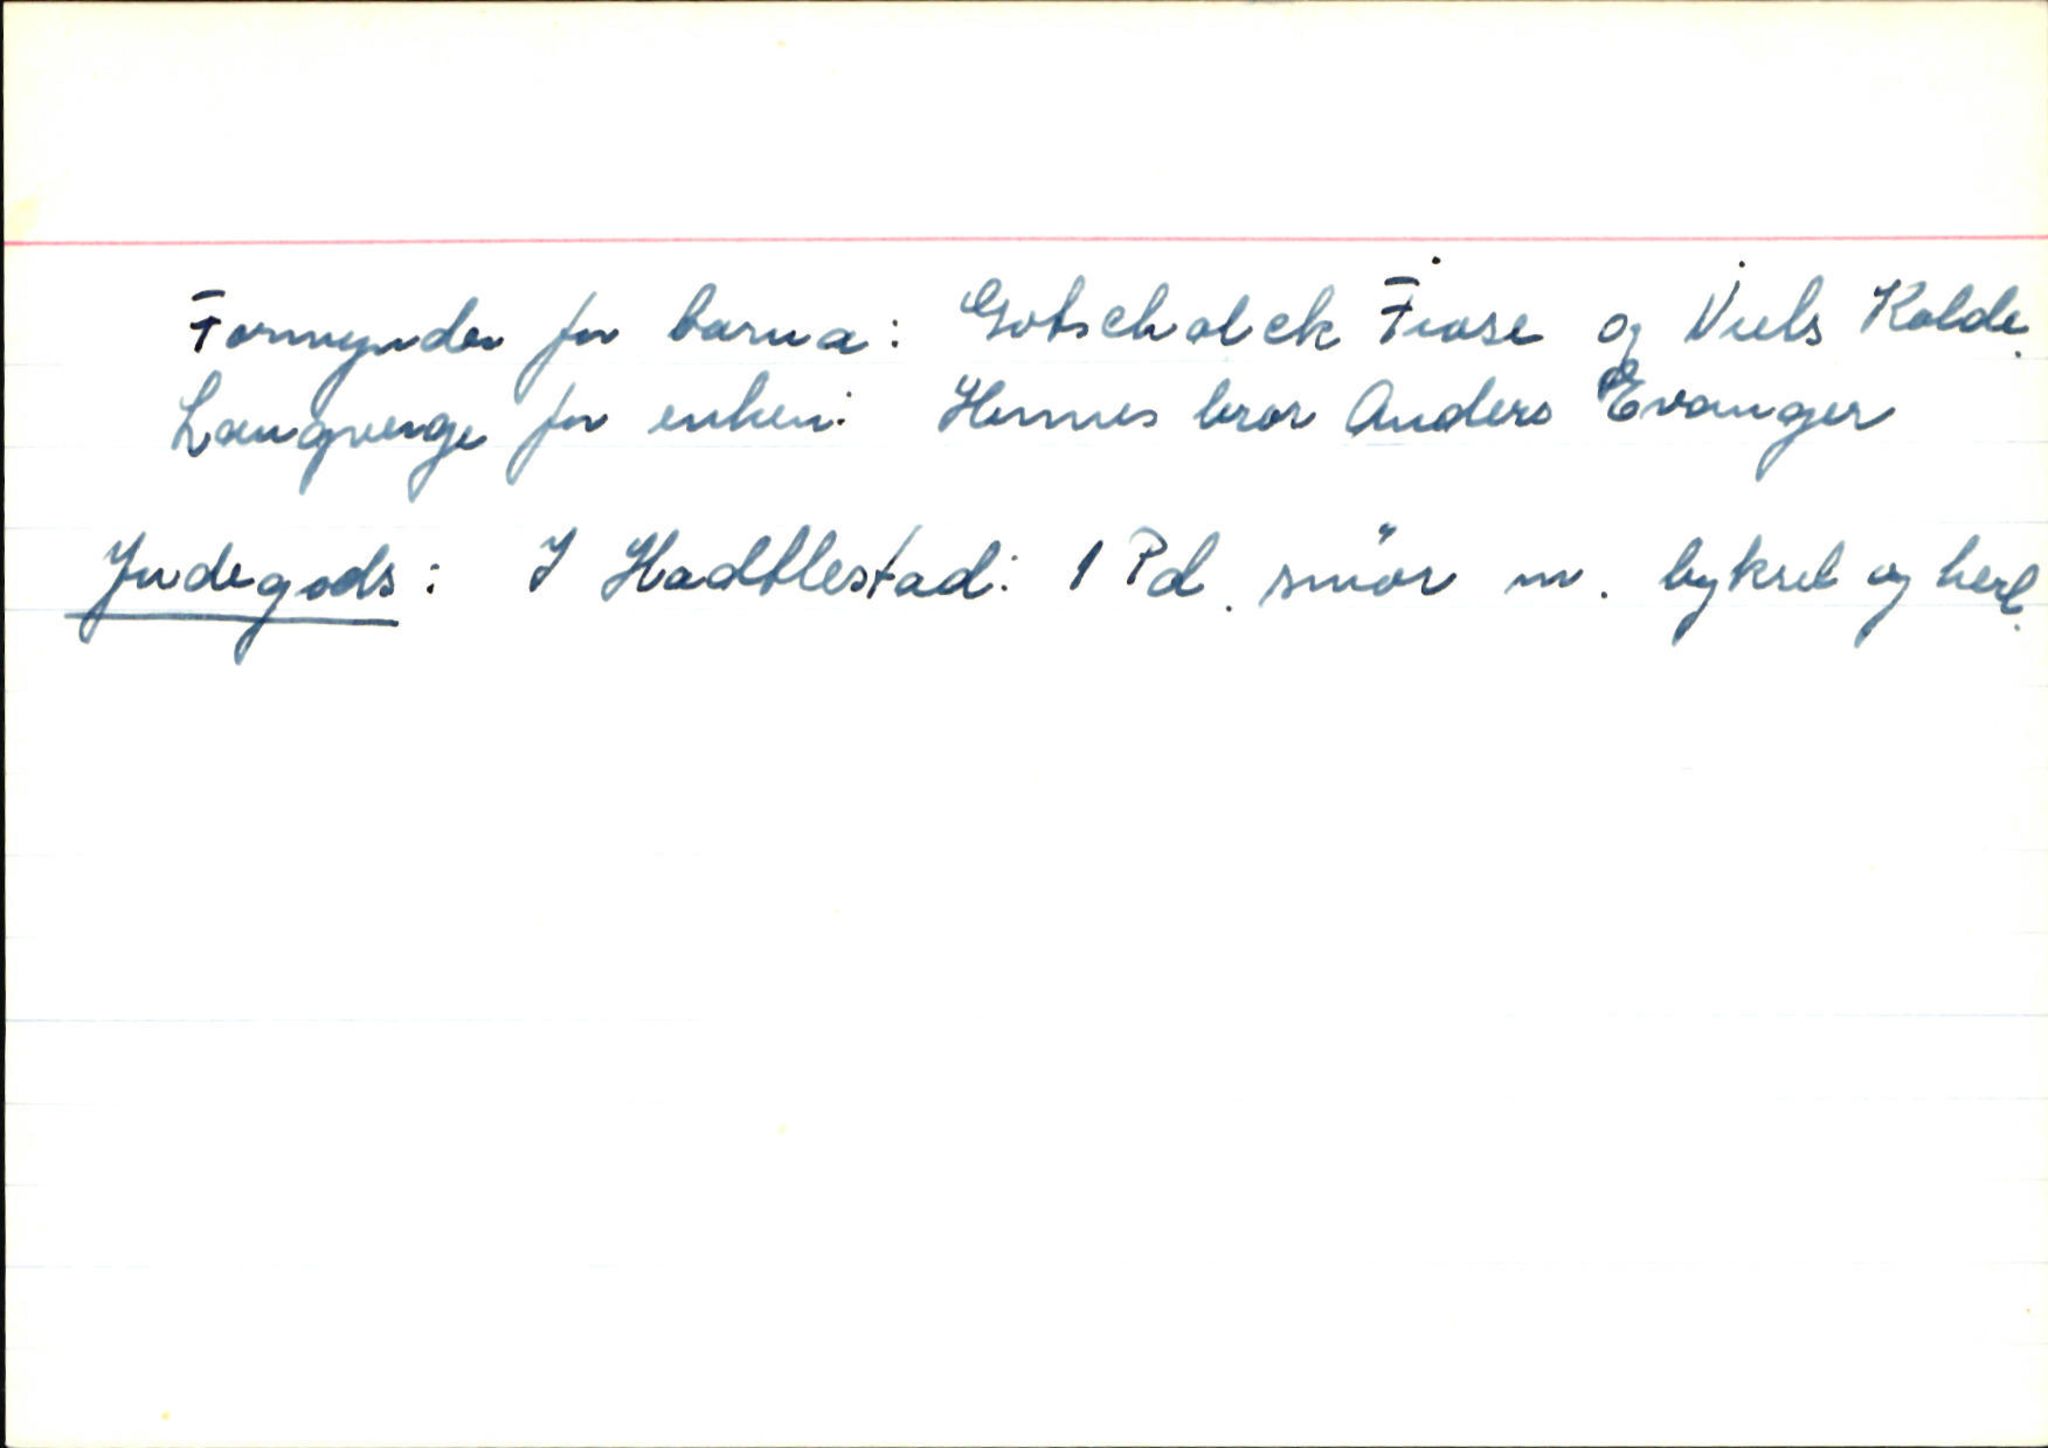 Formynder for barna: Gotschalck Fiose og Niels Kolde.
Laugverge for enken: Hennes bror Anders Evanger
Jndegods: J Hadtlestad: 1 Pd. smör m. byksel og herl.